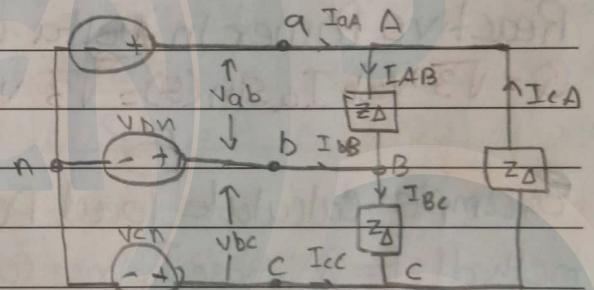 a IaA A
- +
IAB
Vab
ZΔ
IcA
Vbn
n - + b IbB B
ZΔ
IBc
Vbc
ZΔ
Vcn
- + C IcC C